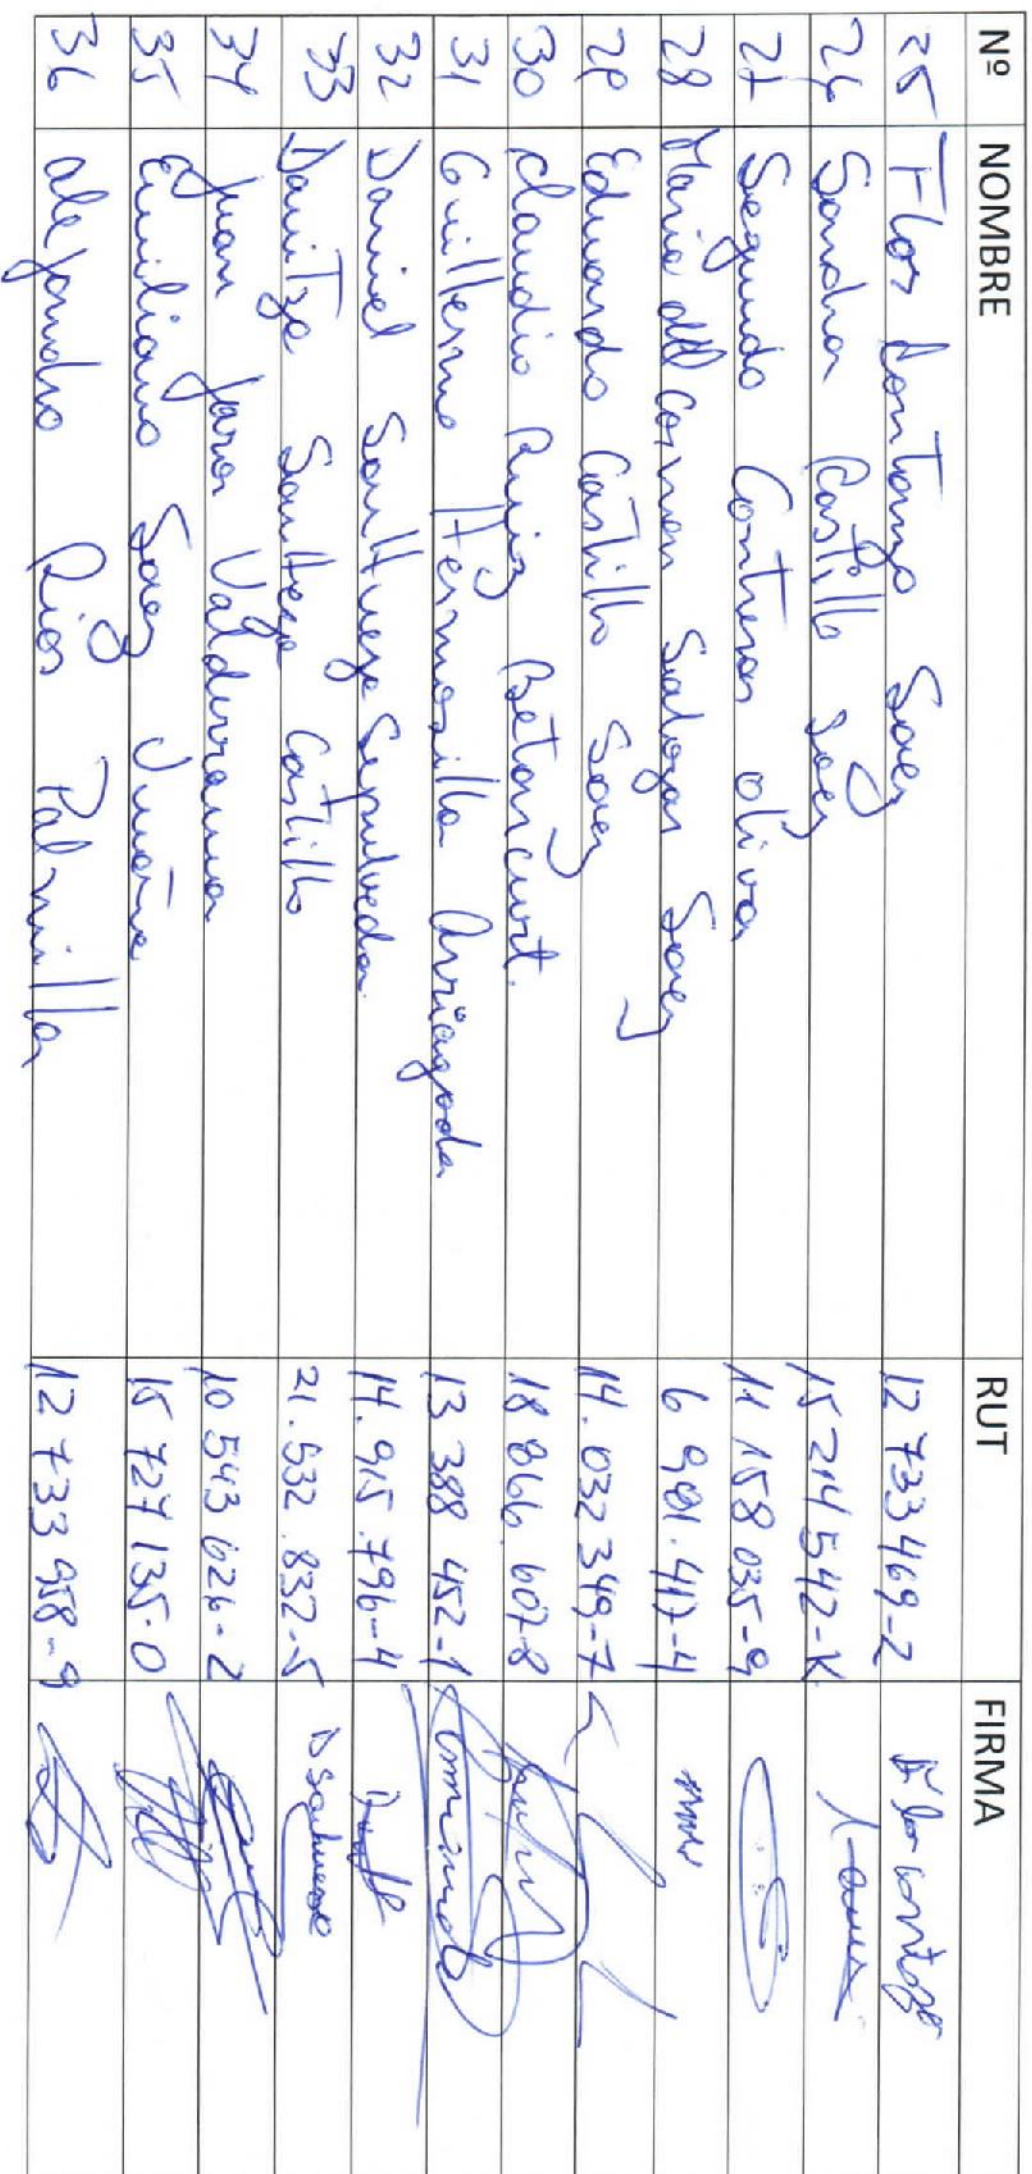 Nº NOMBRE RUT FIRMA
25 Flor Contanzo Saez 12 733 469-2 Flor contzo
26 Sandra Castillo Saez 15 214 542-K
27 Segundo Contreras oliva 11 158 035-9
28 Maria del Carmen Salazar Saez 6 981.417-4
29 Eduardo Castillo Saez 14.032 349-7
30 Claudio Ruiz Betancurt. 18 866 607-8
31 Guillermo Hermosilla Arriagada 13 388 452-1
32 Daniel Santhueza Sepulveda. 14.915.796-4
33 Danitza Santheza Castillo 21.532.832-5
34 Juan Jara Valderrama 10 543 626-2
35 Emiliano Saez Umaña 15 727 135-0
36 alejandro Rios Palmilla 12 733 958-9